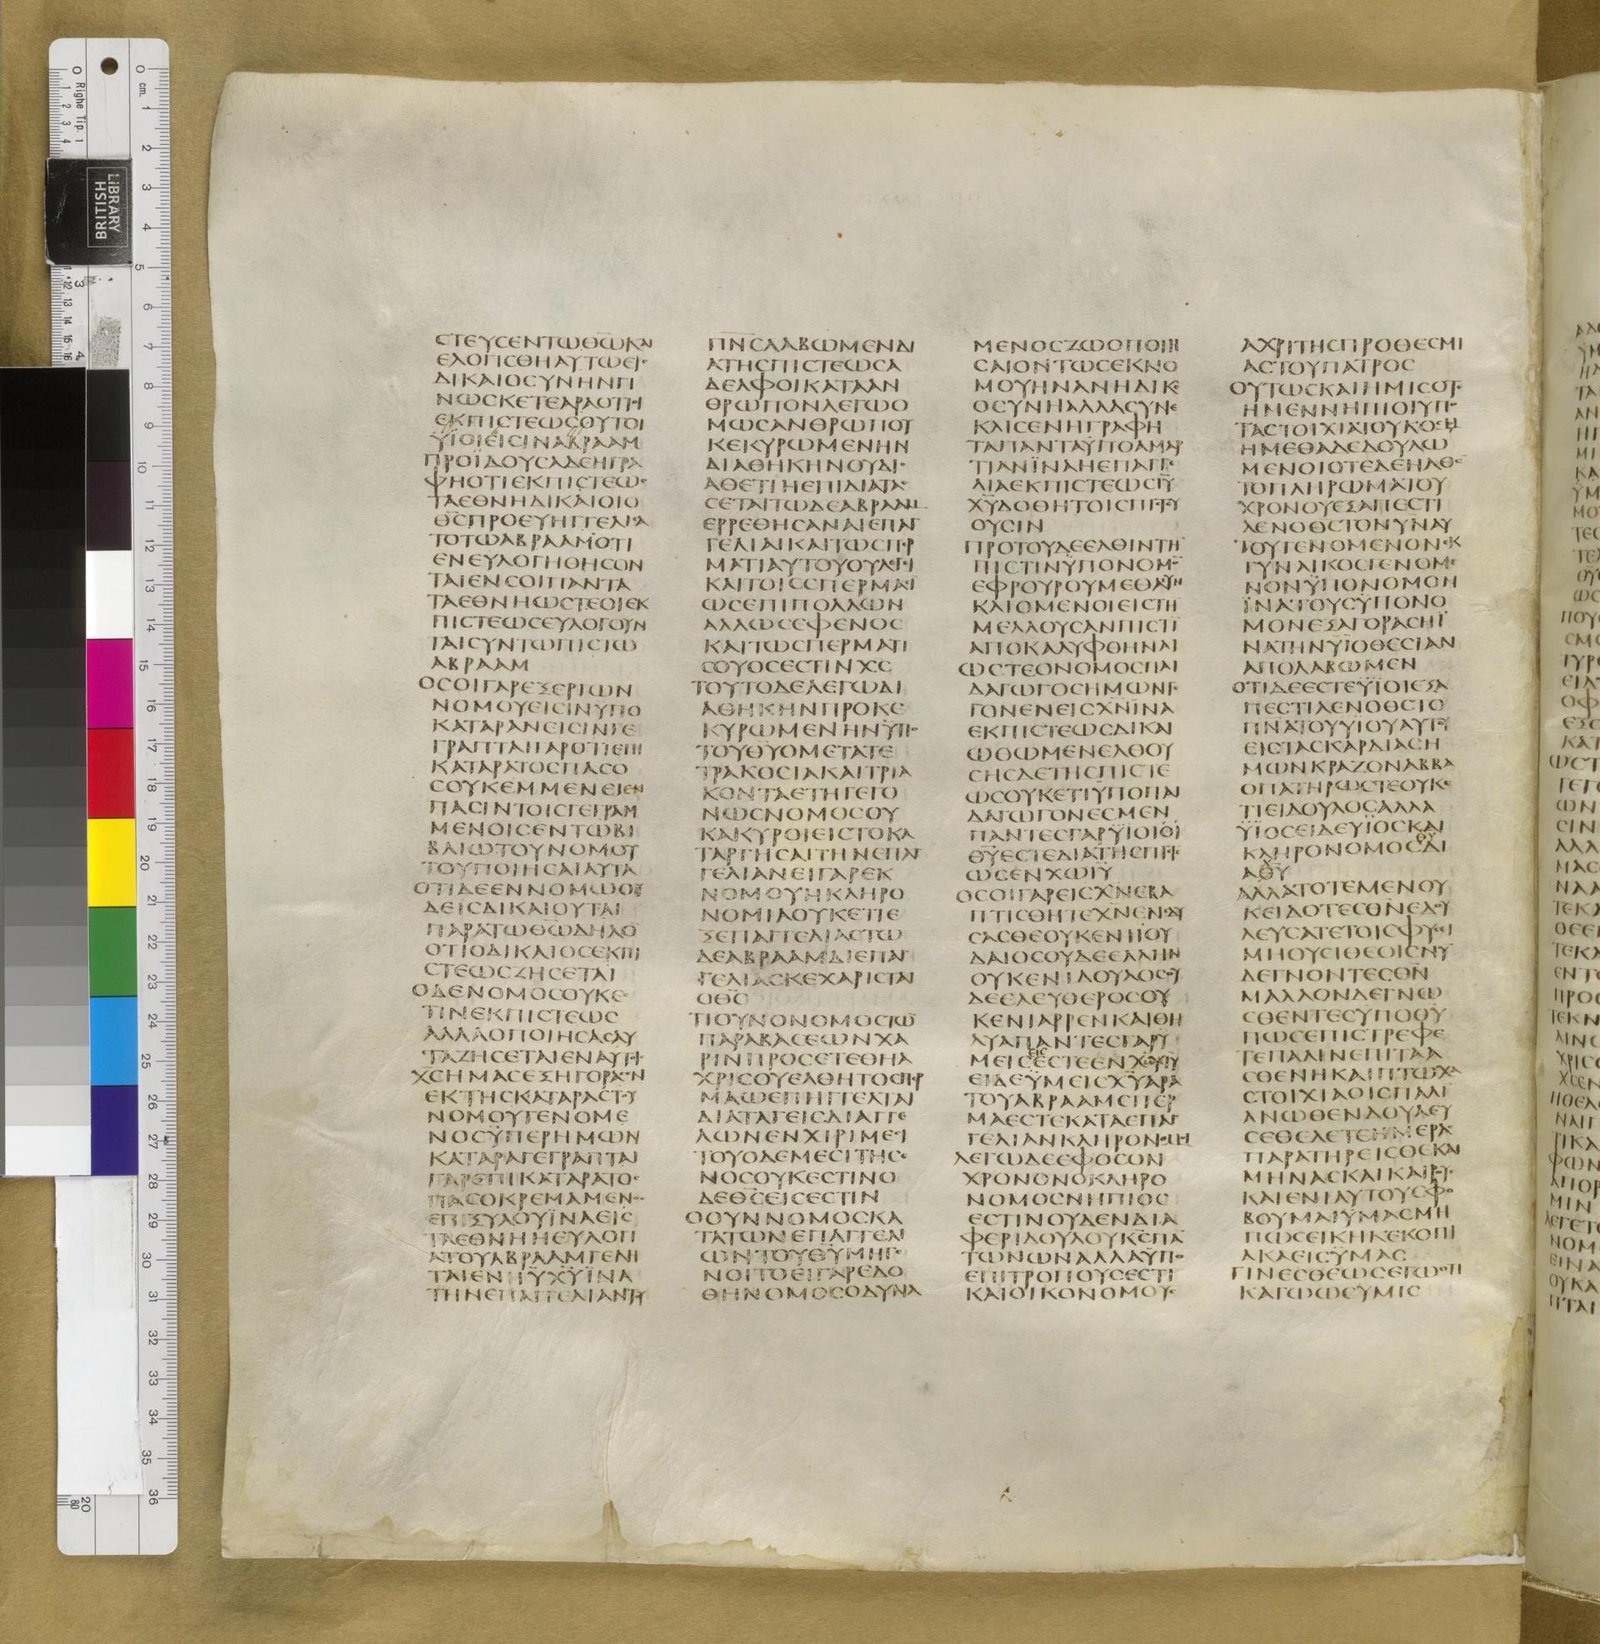 ϹΤΕΥϹΕΝΤΩΘΩΚΑΙ
ΕΛΟΓΙϹΘΗΑΥΤΩΕΙϹ
ΔΙΚΑΙΟϹΥΝΗΝΓΙ
ΝΩϹΚΕΤΕΑΡΑΟΤΙΟΙ
ΕΚΠΙϹΤΕΩϹΟΥΤΟΙ
ΫΪΟΙΕΙϹΙΝΑΒΡΑΑΜ
ΠΡΟΪΔΟΥϹΑΔΕΗΓΡΑ
ΦΗΟΤΙΕΚΠΙϹΤΕΩϹ
ΤΑΕΘΝΗΔΙΚΑΙΟΙΟ
ΘϹΠΡΟΕΥΗΓΓΕΛΙϹΑ
ΤΟΤΩΑΒΡΑΑΜΟΤΙ
ΕΝΕΥΛΟΓΗΘΗϹΟΝ
ΤΑΙΕΝϹΟΙΠΑΝΤΑ
ΤΑΕΘΝΗΩϹΤΕΟΙΕΚ
ΠΙϹΤΕΩϹΕΥΛΟΓΟΥΝ
ΤΑΙϹΥΝΤΩΠΙϹΤΩ
ΑΒΡΑΑΜ
ΟϹΟΙΓΑΡΕΞΕΡΓΩΝ
ΝΟΜΟΥΕΙϹΙΝΥΠΟ
ΚΑΤΑΡΑΝΕΙϹΙΝΓΕ
ΓΡΑΠΤΑΙΓΑΡΟΤΙΕΠΙ
ΚΑΤΑΡΑΤΟϹΠΑϹΟ
ϹΟΥΚΕΜΜΕΝΕΙΕΝ
ΠΑϹΙΝΤΟΙϹΓΕΓΡΑΜ
ΜΕΝΟΙϹΕΝΤΩΒΙ
ΒΛΙΩΤΟΥΝΟΜΟΥ
ΤΟΥΠΟΙΗϹΑΙΑΥΤΑ
ΟΤΙΔΕΕΝΝΟΜΩΟΥ
ΔΕΙϹΔΙΚΑΙΟΥΤΑΙ
ΠΑΡΑΤΩΘΩΔΗΛΟ
ΟΤΙΟΔΙΚΑΙΟϹΕΚΠΙ
ϹΤΕΩϹΖΗϹΕΤΑΙ
ΟΔΕΝΟΜΟϹΟΥΚΕ
ΤΙΝΕΚΠΙϹΤΕΩϹ
ΑΛΛΑΟΠΟΙΗϹΑϹΑΥ
ΤΑΖΗϹΕΤΑΙΕΝΑΥΤΟΙϹ
ΧϹΗΜΑϹΕΞΗΓΟΡΑϹΕΝ
ΕΚΤΗϹΚΑΤΑΡΑϹΤΟΥ
ΝΟΜΟΥΓΕΝΟΜΕ
ΝΟϹΫΠΕΡΗΜΩΝ
ΚΑΤΑΡΑΓΕΓΡΑΠΤΑΙ
ΓΑΡΕΠΙΚΑΤΑΡΑΤΟϹ
ΠΑϹΟΚΡΕΜΑΜΕΝΟϹ
ΕΠΙΞΥΛΟΥΪΝΑΕΙϹ
ΤΑΕΘΝΗΗΕΥΛΟΓΙ
ΑΤΟΥΑΒΡΑΑΜΓΕΝΗ
ΤΑΙΕΝΙΥΧΥΪΝΑ
ΤΗΝΕΠΑΓΓΕΛΙΑΝΤΟΥ
ΠΝϹΛΑΒΩΜΕΝΔΙ
ΑΤΗϹΠΙϹΤΕΩϹΑ
ΔΕΛΦΟΙΚΑΤΑΑΝ
ΘΡΩΠΟΝΛΕΓΩΟ
ΜΩϹΑΝΘΡΩΠΟΥ
ΚΕΚΥΡΩΜΕΝΗΝ
ΔΙΑΘΗΚΗΝΟΥΔΙϹ
ΑΘΕΤΙΗΕΠΙΔΙΑΤΑϹ
ϹΕΤΑΙΤΩΔΕΑΒΡΑΑΜ
ΕΡΡΕΘΗϹΑΝΑΙΕΠΑΓ
ΓΕΛΙΑΙΚΑΙΤΩϹΠΕΡ
ΜΑΤΙΑΥΤΟΥΟΥΛΕΓΙ
ΚΑΙΤΟΙϹϹΠΕΡΜΑϹΙ
ΩϹΕΠΙΠΟΛΛΩΝ
ΑΛΛΩϹΕΦΕΝΟϹ
ΚΑΙΤΩϹΠΕΡΜΑΤΙ
ϹΟΥΟϹΕϹΤΙΝΧϹ
ΤΟΥΤΟΔΕΛΕΓΩΔΙ
ΑΘΗΚΗΝΠΡΟΚΕ
ΚΥΡΩΜΕΝΗΝΫΠΟ
ΤΟΥΘΥΟΜΕΤΑΤΕ
ΤΡΑΚΟϹΙΑΚΑΙΤΡΙΑ
ΚΟΝΤΑΕΤΗΓΕΓΟ
ΝΩϹΝΟΜΟϹΟΥ
ΚΑΚΥΡΟΙΕΙϹΤΟΚΑ
ΤΑΡΓΗϹΑΙΤΗΝΕΠΑΓ
ΓΕΛΙΑΝΕΙΓΑΡΕΚ
ΝΟΜΟΥΗΚΛΗΡΟ
ΝΟΜΙΑΟΥΚΕΤΙΕ
ΞΕΠΑΓΓΕΛΙΑϹΤΩ
ΔΕΑΒΡΑΑΜΔΙΕΠΑΓ
ΓΕΛΙΑϹΚΕΧΑΡΙϹΤΑΙ
ΟΘϹ
ΤΙΟΥΝΟΝΟΜΟϹΤΩ
ΠΑΡΑΒΑϹΕΩΝΧΑ
ΡΙΝΠΡΟϹΕΤΕΘΗΑ
ΧΡΙϹΟΥΕΛΘΗΤΟϹΠΕΡ
ΜΑΩΕΠΗΓΓΕΛΤΑΙ
ΔΙΑΤΑΓΕΙϹΔΙΑΓΓΕ
ΛΩΝΕΝΧΙΡΙΜΕϹΙ
ΤΟΥΟΔΕΜΕϹΙΤΗϹΕ
ΝΟϹΟΥΚΕϹΤΙΝΟ
ΔΕΘϹΕΙϹΕϹΤΙΝ
ΟΟΥΝΝΟΜΟϹΚΑ
ΤΑΤΩΝΕΠΑΓΓΕΛΙ
ΩΝΤΟΥΘΥΜΗΓΕ
ΝΟΙΤΟΕΙΓΑΡΕΔΟ
ΘΗΝΟΜΟϹΟΔΥΝΑ
ΜΕΝΟϹΖΩΟΠΟΙΗ
ϹΑΙΟΝΤΩϹΕΚΝΟ
ΜΟΥΗΝΑΝΗΔΙΚΕ
ΟϹΥΝΗΑΛΛΑϹΥΝΕ
ΚΛΙϹΕΝΗΓΡΑΦΗ
ΤΑΠΑΝΤΑΫΠΟΑΜΑΡ
ΤΙΑΝΪΝΑΗΕΠΑΓΓΕ
ΛΙΑΕΚΠΙϹΤΕΩϹΙΥ
ΧΥΔΟΘΗΤΟΙϹΠΙϹΤΕΥ
ΟΥϹΙΝ
ΠΡΟΤΟΥΔΕΕΛΘΙΝΤΗ
ΠΙϹΤΙΝΫΠΟΝΟΜΟ
ΕΦΡΟΥΡΟΥΜΕΘΑϹΥΝ
ΚΛΙΟΜΕΝΟΙΕΙϹΤΗ
ΜΕΛΛΟΥϹΑΝΠΙϹΤΙ
ΑΠΟΚΑΛΥΦΘΗΝΑΙ
ΩϹΤΕΟΝΟΜΟϹΠΑΙ
ΔΑΓΩΓΟϹΗΜΩΝΓΕ
ΓΟΝΕΝΕΙϹΧΝΪΝΑ
ΕΚΠΙϹΤΕΩϹΔΙΚΑΙ
ΩΘΩΜΕΝΕΛΘΟΥ
ϹΗϹΔΕΤΗϹΠΙϹΤΕ
ΩϹΟΥΚΕΤΙΫΠΟΠΑΙ
ΔΑΓΩΓΟΝΕϹΜΕΝ
ΠΑΝΤΕϹΓΑΡΫΙΟΙΟΙ
ΘΥΕϹΤΕΔΙΑΤΗϹΠΙϹΤΕ
ΩϹΕΝΧΩΙΥ
ΟϹΟΙΓΑΡΕΙϹΧΝΕΒΑ
ΠΤΙϹΘΗΤΕΧΝΕΝΕΔΥ
ϹΑϹΘΕΟΥΚΕΝΙΪΟΥ
ΔΑΙΟϹΟΥΔΕΕΛΛΗΝ
ΟΥΚΕΝΙΔΟΥΛΟϹΟΥ
ΔΕΕΛΕΥΘΕΡΟϹΟΥ
ΚΕΝΙΑΡΡΕΝΚΑΙΘΗ
ΛΥΑΠΑΝΤΕϹΓΑΡΥ
ΜΕΙϹΕϹΤΕΕΝΧΩΙΥ
ΕΙΔΕΫΜΕΙϹΧΥΑΡΑ
ΤΟΥΑΒΡΑΑΜϹΠΕΡ
ΜΑΕϹΤΕΚΑΤΑΕΠΑΓ
ΓΕΛΙΑΝΚΛΗΡΟΝΟΜΟΙ
ΛΕΓΩΔΕΕΦΟϹΟΝ
ΧΡΟΝΟΝΟΚΛΗΡΟ
ΝΟΜΟϹΝΗΠΙΟϹ
ΕϹΤΙΝΟΥΔΕΝΔΙΑ
ΦΕΡΙΔΟΥΛΟΥΚϹΠΑ
ΤΩΝΩΝΑΛΛΑΫΠΟ
ΕΠΙΤΡΟΠΟΥϹΕϹΤΙ
ΚΑΙΟΙΚΟΝΟΜΟΥϹ
ΑΧΡΙΤΗϹΠΡΟΘΕϹΜΙ
ΑϹΤΟΥΠΑΤΡΟϹ
ΟΥΤΩϹΚΑΙΗΜΙϹΟΤΕ
ΗΜΕΝΝΗΠΙΟΙΥΠΟ
ΤΑϹΤΟΙΧΙΑΤΟΥΚΟϹΜΟΥ
ΗΜΕΘΑΔΕΔΟΥΛΩ
ΜΕΝΟΙΟΤΕΔΕΗΛΘΕ
ΤΟΠΛΗΡΩΜΑΤΟΥ
ΧΡΟΝΟΥΕΞΑΠΕϹΤΙ
ΛΕΝΟΘϹΤΟΝΥΝΑΥ
ΤΟΥΓΕΝΟΜΕΝΟΝΕΚ
ΓΥΝΑΙΚΟϹΓΕΝΟΜΕ
ΝΟΝΫΠΟΝΟΜΟΝ
ΪΝΑΤΟΥϹΫΠΟΝΟ
ΜΟΝΕΞΑΓΟΡΑϹΗΪ
ΝΑΤΗΝΥΪΟΘΕϹΙΑΝ
ΑΠΟΛΑΒΩΜΕΝ
ΟΤΙΔΕΕϹΤΕΫΪΟΙΕΞΑ
ΠΕϹΤΙΛΕΝΟΘϹΤΟ
ΠΝΑΤΟΥΥΪΟΥΑΥΤΟΥ
ΕΙϹΤΑϹΚΑΡΔΙΑϹΗ
ΜΩΝΚΡΑΖΟΝΑΒΒΑ
ΟΠΑΤΗΡΩϹΤΕΟΥΚΕ
ΤΙΕΙΔΟΥΛΟϹΑΛΛΑ
ΫΪΟϹΕΙΔΕΥΪΟϹΚΑΙ
ΚΛΗΡΟΝΟΜΟϹΔΙ
ΑΘΥ
ΑΛΛΑΤΟΤΕΜΕΝΟΥ
ΚΕΙΔΟΤΕϹΘΝΕΔΟΥ
ΛΕΥϹΑΤΕΤΟΙϹΦΥϹΕΙ
ΜΗΟΥϹΙΘΕΟΙϹΝΥ
ΔΕΓΝΟΝΤΕϹΘΝ
ΜΑΛΛΟΝΔΕΓΝΩ
ϹΘΕΝΤΕϹΥΠΟΘΥ
ΠΩϹΕΠΙϹΤΡΕΦΕ
ΤΕΠΑΛΙΝΕΠΙΤΑΑ
ϹΘΕΝΗΚΑΙΠΤΩΧΑ
ϹΤΟΙΧΙΑΟΙϹΠΑΛΙ
ΑΝΩΘΕΝΔΟΥΛΕΥ
ϹΕΘΕΛΕΤΕΗΜΕΡΑϹ
ΠΑΡΑΤΗΡΕΙϹΘΕΚΑΙ
ΜΗΝΑϹΚΑΙΚΑΙΡΟΥϹ
ΚΑΙΕΝΙΑΥΤΟΥϹΦΟ
ΒΟΥΜΑΙΫΜΑϹΜΗ
ΠΩϹΕΙΚΗΚΕΚΟΠΙ
ΑΚΑΕΙϹΥΜΑϹ
ΓΙΝΕϹΘΕΩϹΕΓΩΟΤΙ
ΚΑΓΩΩϹΥΜΙϹ
LIBRARY
BRITISH